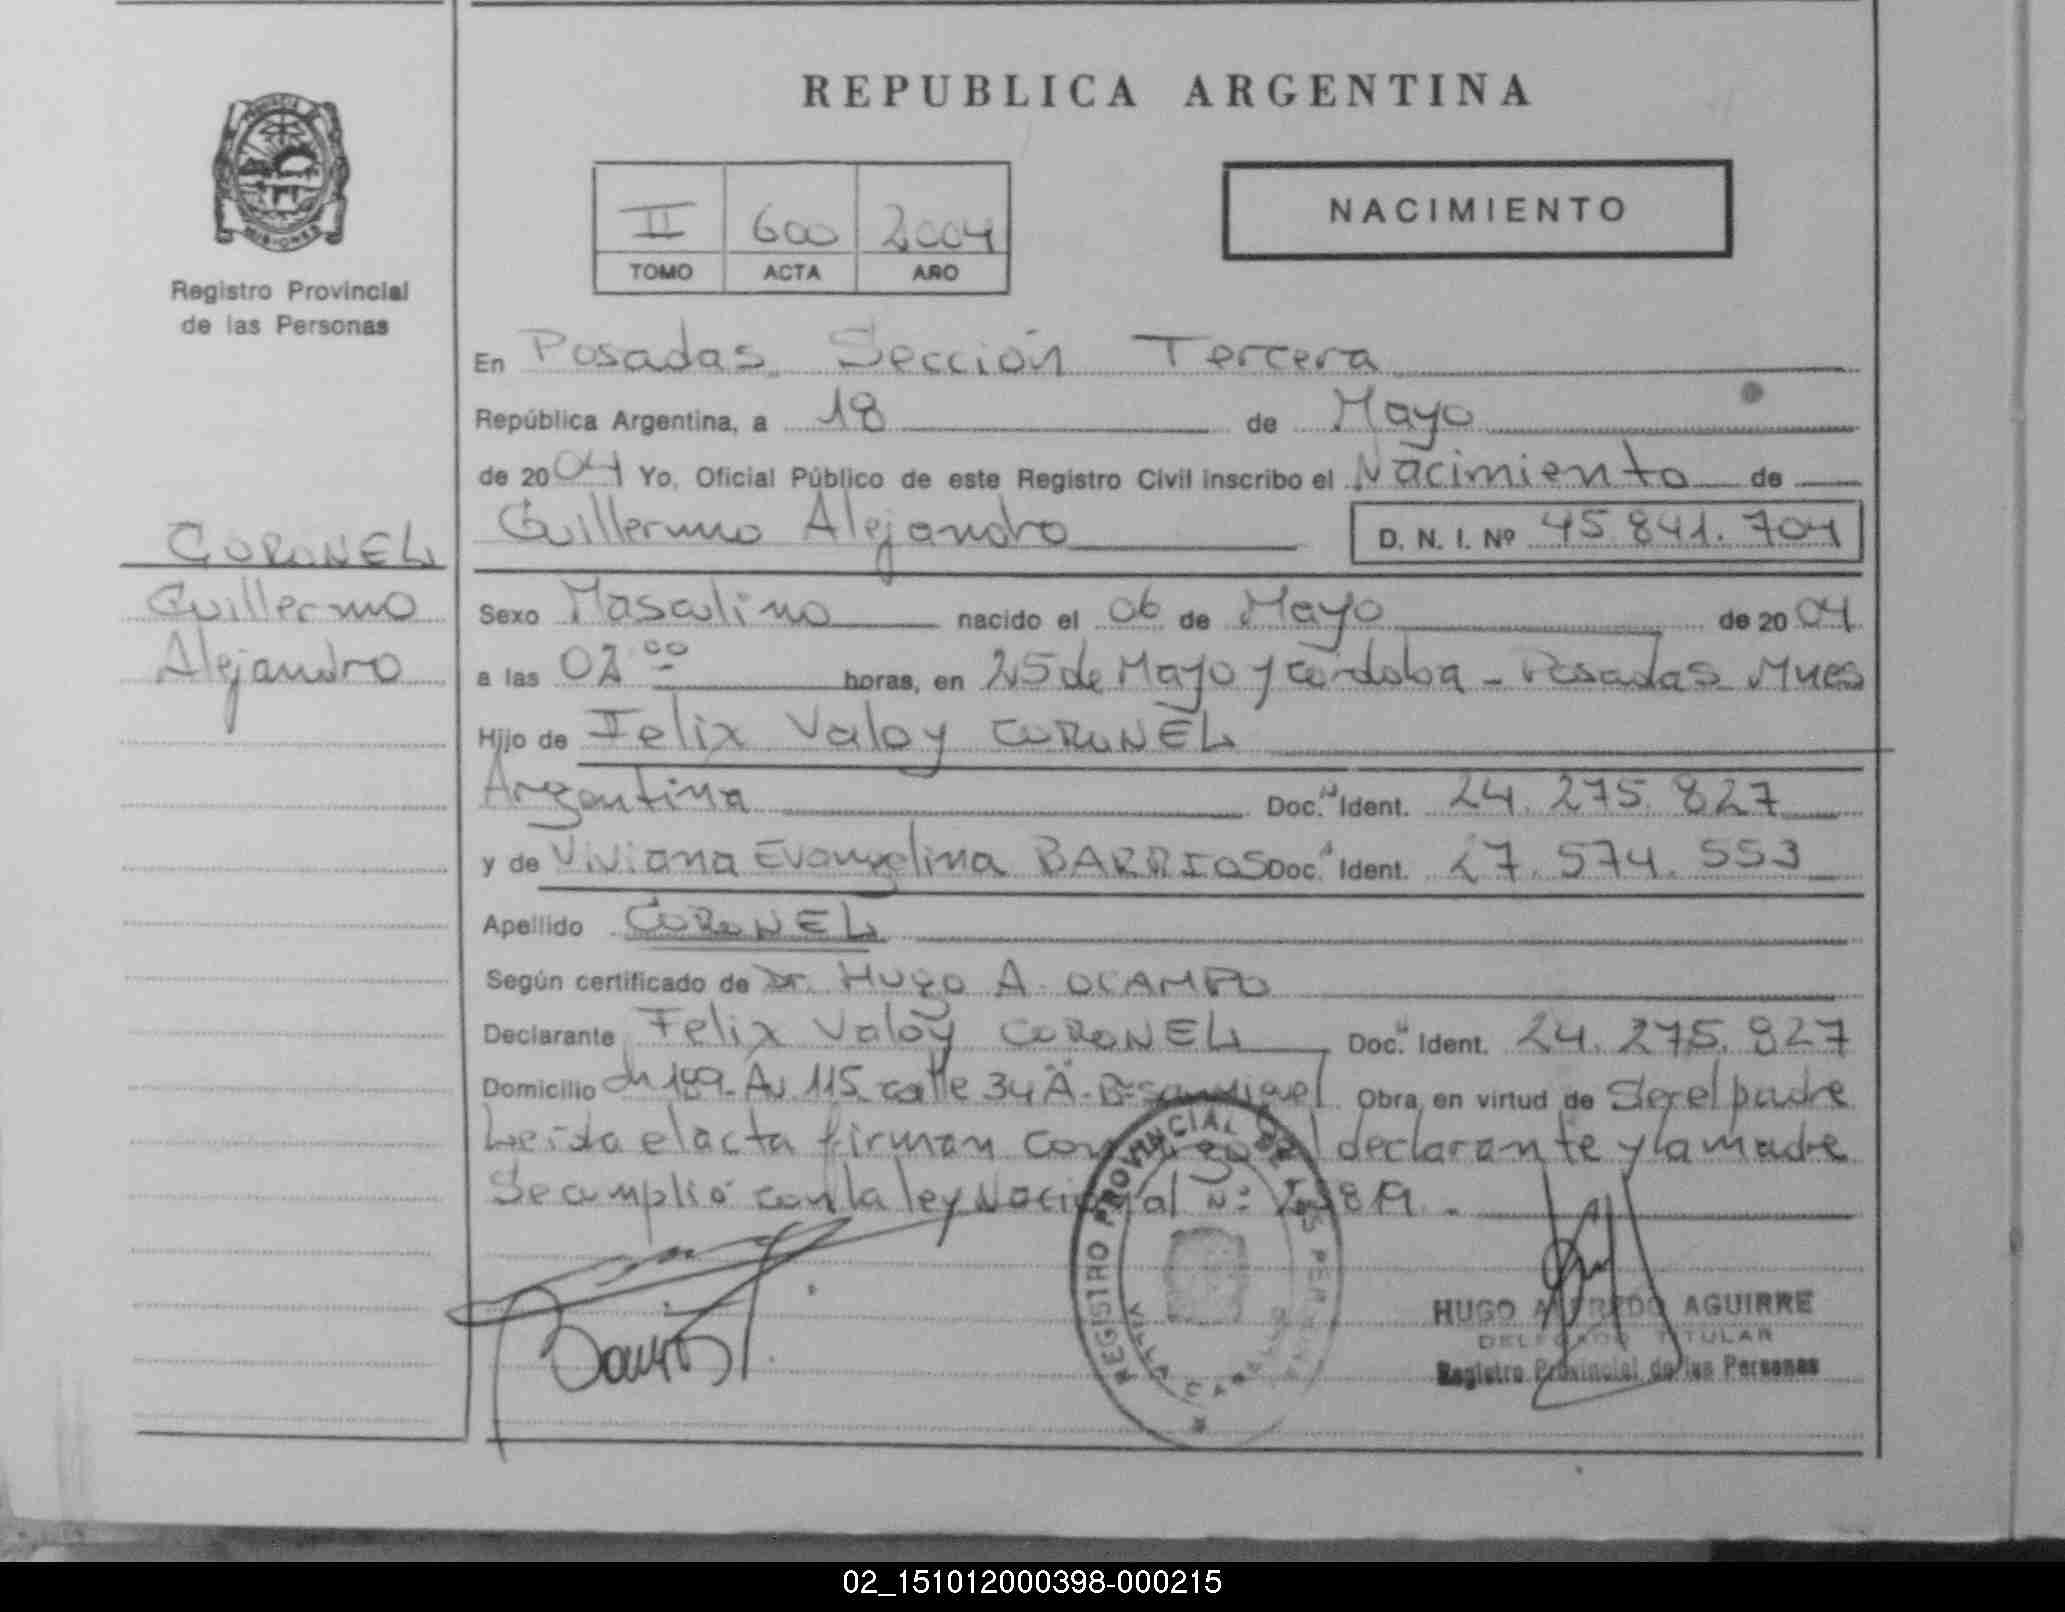 REPUBLICA ARGENTINA
PROVINCIA
MISIONES
Registro Provincial
de las Personas
II 600 2004
TOMO ACTA AÑO
NACIMIENTO
En Posadas Sección Tercera
República Argentina, a 18 de Mayo
de 2004 Yo, Oficial Público de este Registro Civil inscribo el Nacimiento de
CORONEL
Guillermo
Alejandro
Guillermo Alejandro D. N. I. Nº 45.841.704
Sexo Masculino nacido el 06 de Mayo de 2004
a las 02 00 horas, en 25 de Mayo y Córdoba - Posadas Mnes
Hijo de Felix Valoy CORONEL
Argentina Doc. N Ident. 24.275.827
y de Viviana Evangelina BARRIOS Doc. Ident. 27.574.553
Apellido CORONEL
Según certificado de Dr. Hugo A. OCAMPO
Declarante Felix Valoy CORONEL Doc. N Ident. 24.275.827
Domicilio Ch 189- Av 115 calle 34 A - Bº San Miguel Obra en virtud de Ser el padre
Leída el acta firman conmigo el declarante y la madre
Se cumplió con la ley Nacional Nº
REGISTRO PROVINCIAL DE LAS PERSONAS
VILLA CABELLO
HUGO ALFREDO AGUIRRE
DELEGADO TITULAR
Registro Provincial de las Personas
02_151012000398-000215